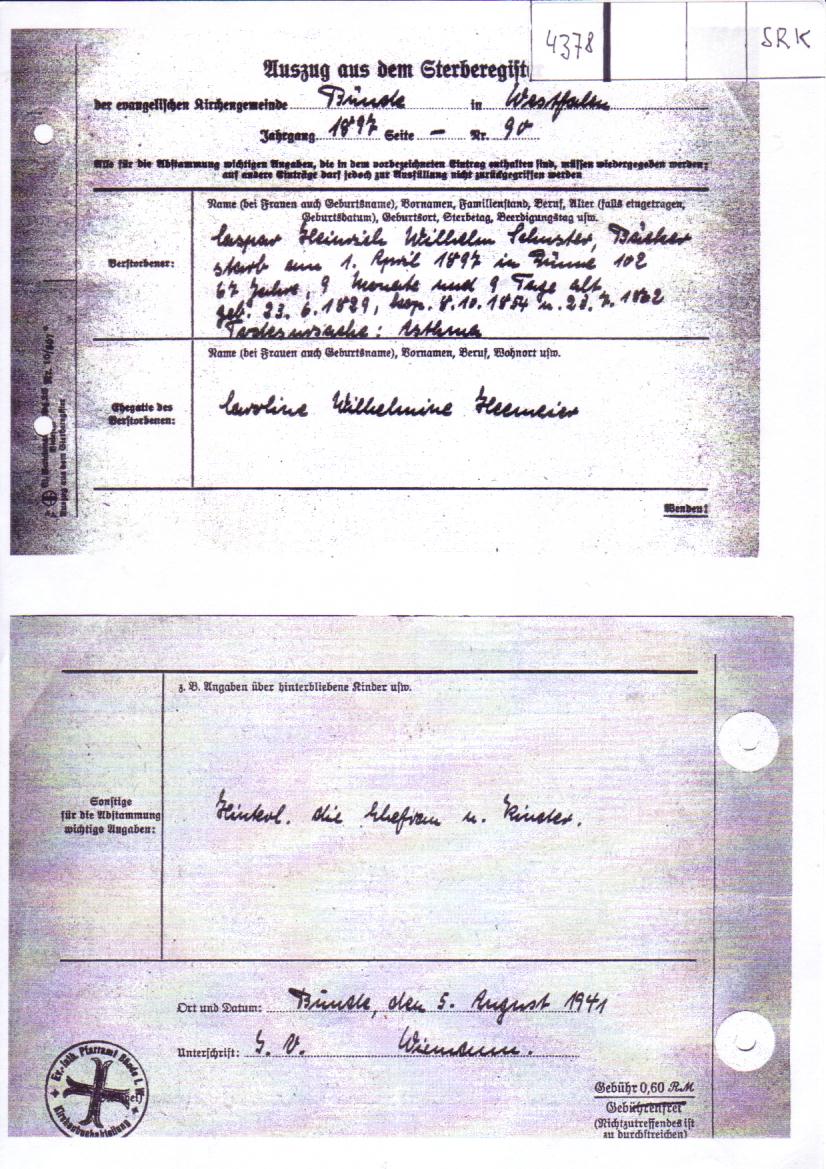 4378 SRK
Auszug aus dem Sterberegist
der evangelischen Kirchengemeinde Bünde in Westfalen
Jahrgang 1897 Seite – Nr. 90
Alle für die Abstammung wichtigen Angaben, die in dem vorbezeichneten Eintrag enthalten sind, müssen wiedergegeben werden;
auf andere Einträge darf jedoch zur Ausfüllung nicht zurückgegriffen werden
Name (bei Frauen auch Geburtsname), Vornamen, Familienstand, Beruf, Alter (falls eingetragen,
Geburtsdatum), Geburtsort, Sterbetag, Beerdigungstag usw.
Verstorbener:
Caspar Heinrich Wilhelm Schuster, Bäcker
starb am 1. April 1897 in Bünde 102
67 Jahre, 9 Monate und 9 Tage alt,
geb. 23. 6. 1829, kop. 8.10.1854 u. 1862
Todesursache: Asthma
Name (bei Frauen auch Geburtsname), Vornamen, Beruf, Wohnort usw.
Ehegatte des
Verstorbenen:
Caroline Wilhelmine Heemeier
Auszug aus dem Sterberegister
Wenden!
z. B. Angaben über hinterbliebene Kinder usw.
Sonstige
für die Abstammung
wichtige Angaben:
Hinterl. die Ehefrau u. Kinder.
Ort und Datum: Bünde, den 5. August 1941
Unterschrift: I. V. Wiemann.
Ev. luth. Pfarramt i. W.
Gebühr 0,60 RM
Gebührenfrei
(Nichtzutreffendes ist
zu durchstreichen)